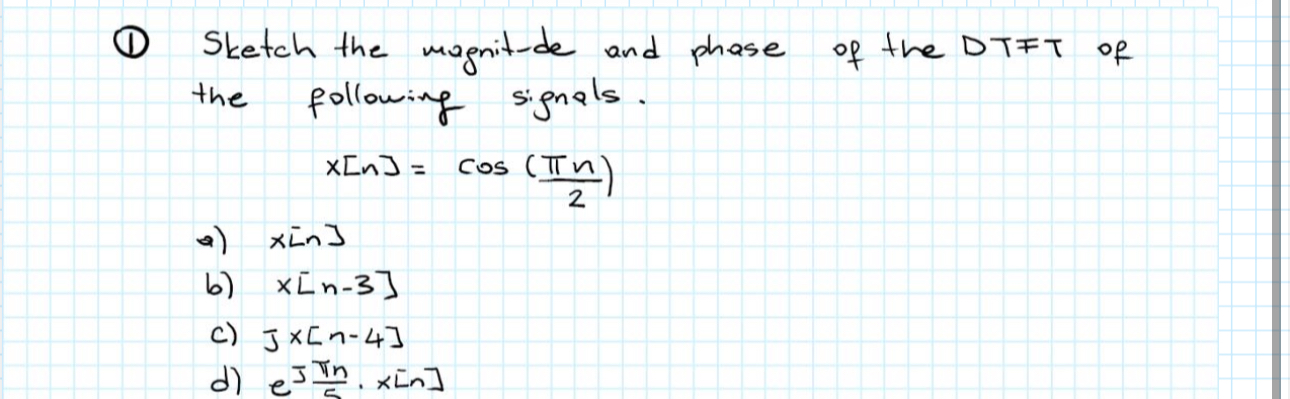 ① Sketch the magnitude and phase of the DTFT of
the following signals.
x[n] = cos (πn/2)
a) x[n]
b) x[n-3]
c) J x[n-4]
d) e^(J πn/5) . x[n]